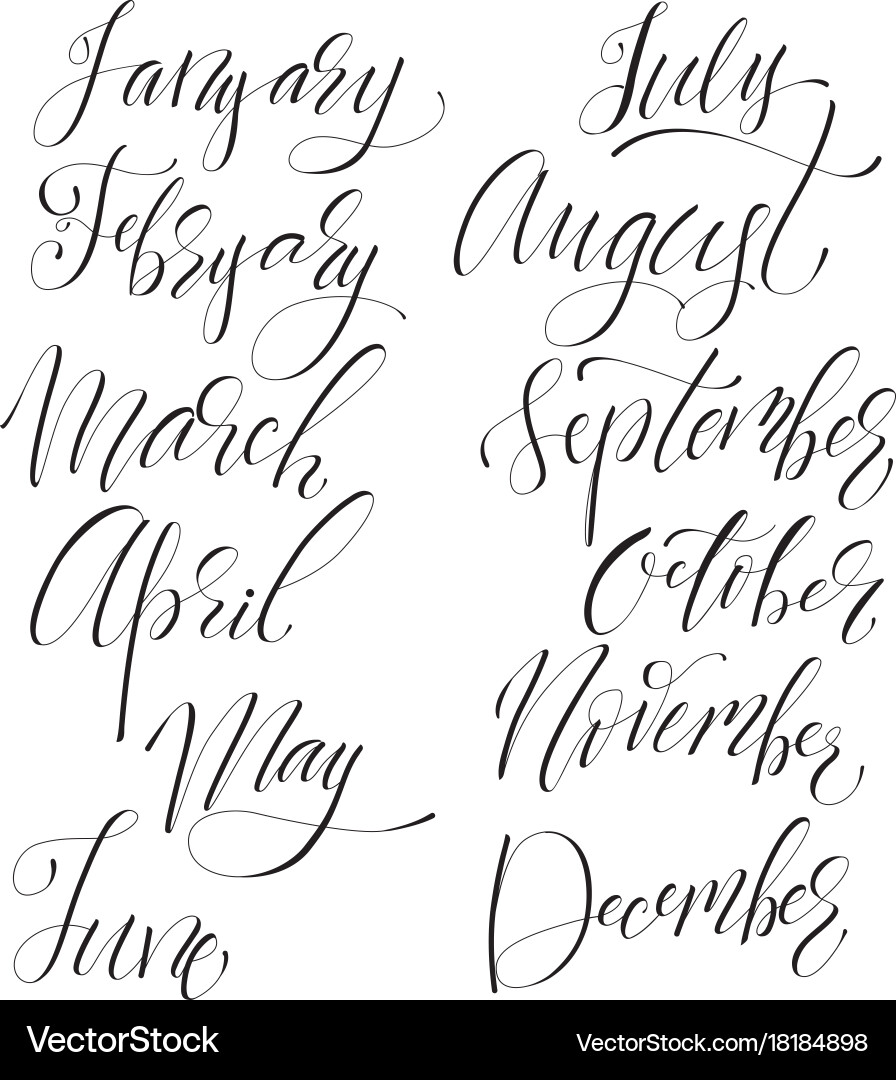 Janyary
Febryary
March
April
May
June
July
August
September
October
November
December
VectorStock
VectorStock.com/18184898